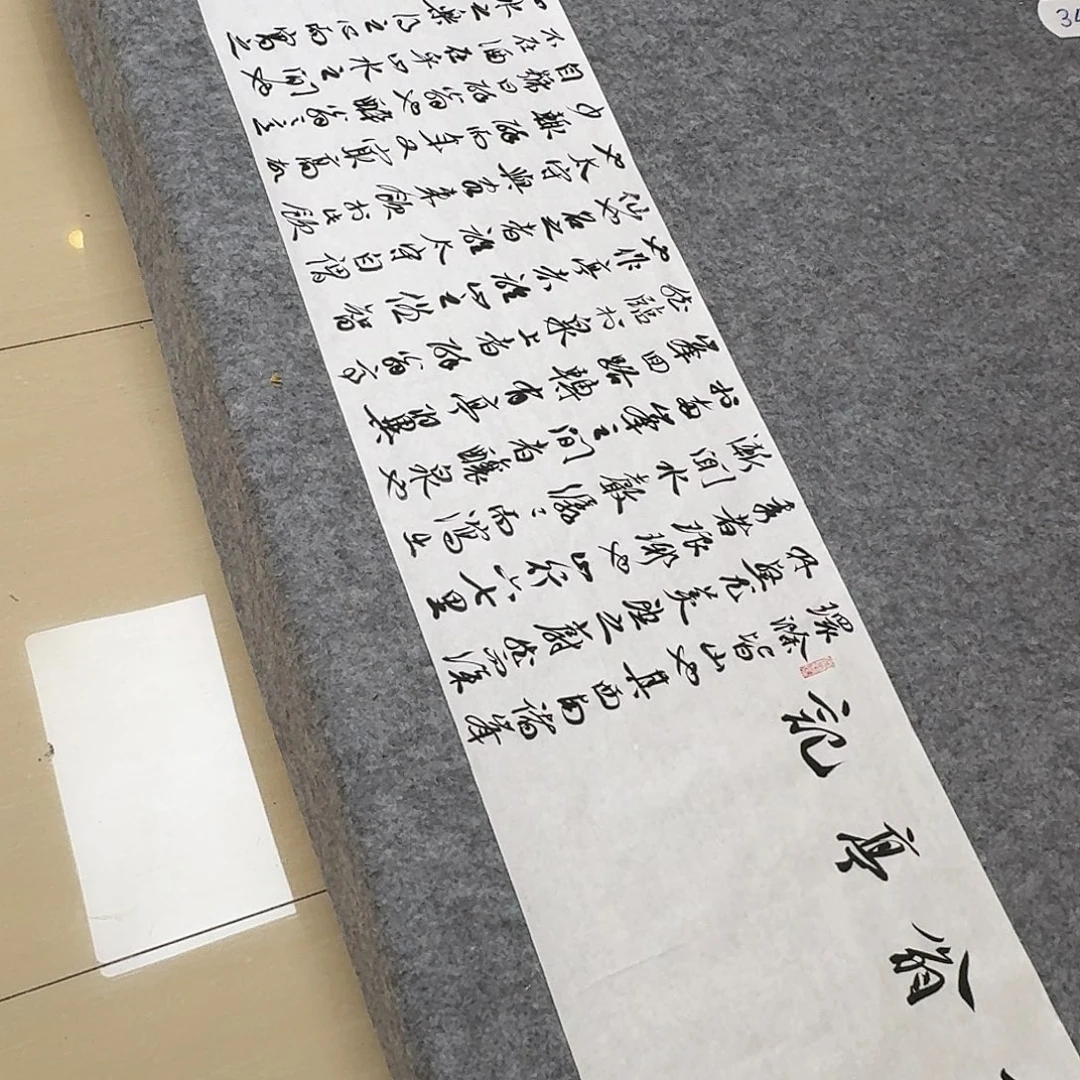 翁亭記
環滁皆山也其西南諸峯
林壑尤美望之蔚然而深
秀者琅琊也山行六七里
漸聞水聲潺〻而瀉出
於兩峯之間者釀泉也
峯回路轉有亭翼
然臨於泉上者醉翁亭
也作亭者誰山之僧智
仙也名之者誰太守自謂
也太守與客來飲於此飲
少輒醉而年又最高故
自號曰醉翁也醉翁之意
不在酒在乎山水之間也
山水之樂得之心而寓之
34